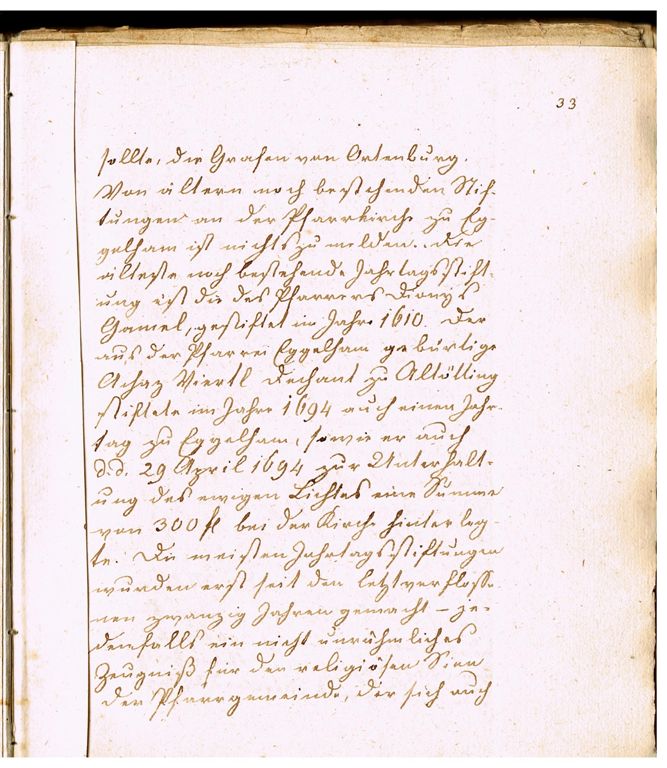 33
sollte, die Grafen von Ortenburg.
Von ältern noch bestehenden Stif-
tungen an der Pfarrkirche zu Eg-
gelham ist nichts zu melden. Die
älteste noch bestehende Jahrtagsstift-
ung ist die des Pfarrers Dionys
Gamel, gestiftet im Jahre 1610. Der
aus der Pfarrei Eggelham gebürtige
Achaz Viertl Dechant zu Altötting
stiftete im Jahre 1694 auch einen Jahr-
tag zu Eggelham, sowie er auch
d.d. 29 April 1694 zur Unterhalt-
ung des ewigen Lichtes eine Summe
von 300 fl bei der Kirche hinterleg-
te. Die meisten Jahrtagsstiftungen
wurden erst seit den letztverflosse-
nen zwanzig Jahren gemacht – je-
denfalls ein nicht unrühmliches
Zeugniß für den religiösen Sinn
der Pfarrgemeinde, der sich auch